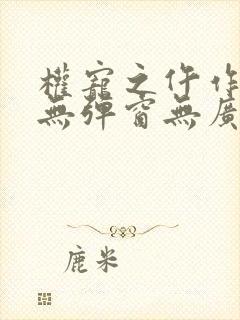 權寵之仵作
無彈窗無廣
鹿米